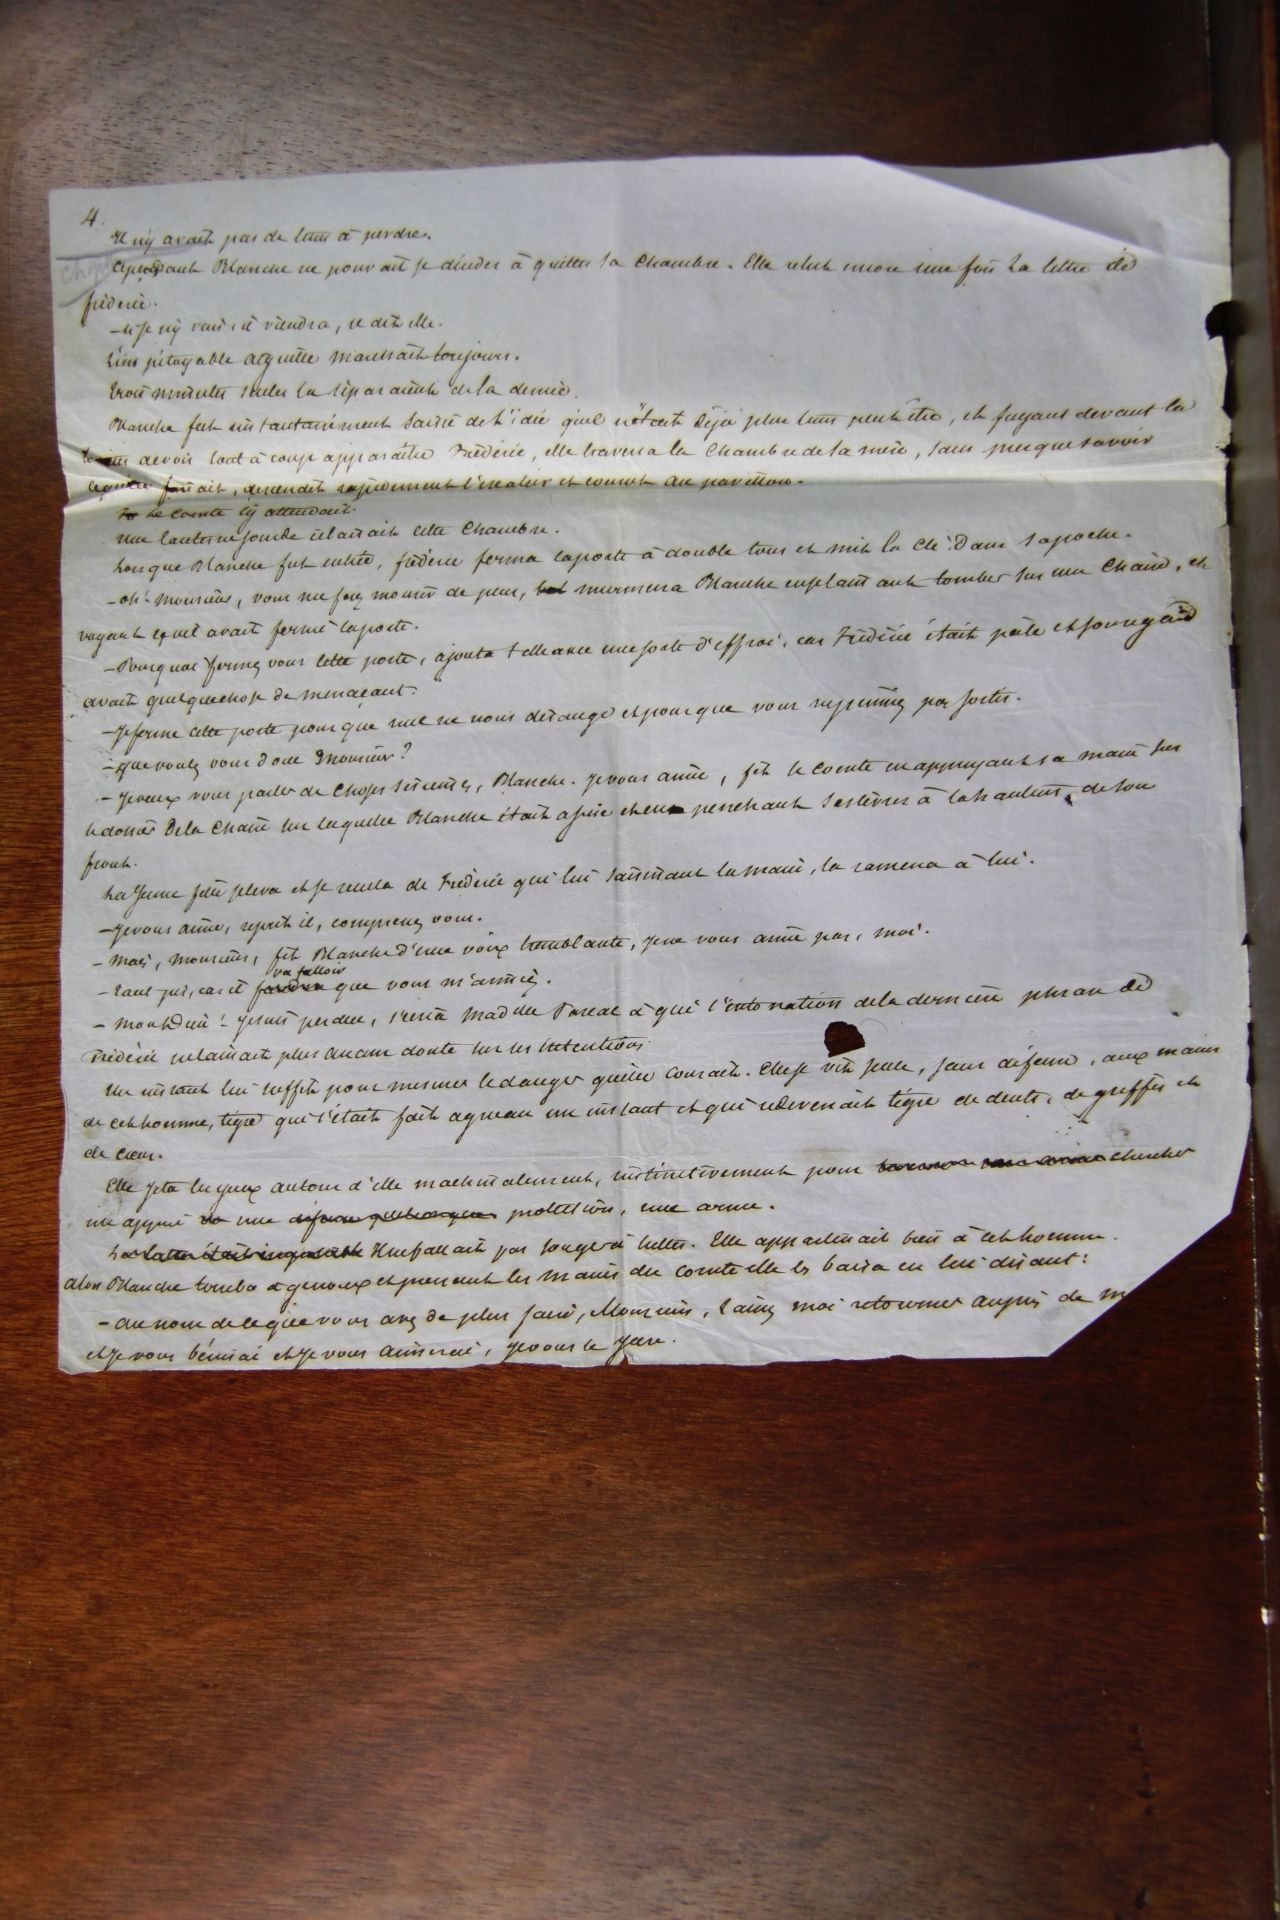 4.
Il n'y avait pas de tems à perdre.
Cependant Blanche ne pouvait se décider à quitter sa chambre. Elle relut encore une fois la lettre de
Frédéric.
– si je n'y vais, il viendra, se dit elle.
L'impitoyable aiguille marchait toujours.
Trois minutes seules la séparaient de la demie.
Blanche fut instantanément saisie de l'idée qu'il n'était déjà plus tems peut être, et fuyant devant la
terreur de voir tout à coup apparaître Frédéric, elle traversa la chambre de sa mère, sans presque savoir
ce qu'elle faisait, descendit rapidement l'escalier et courut au pavillon.
Le comte l'y attendait.
une lanterne sourde éclairait cette chambre.
Lorsque Blanche fut entrée, frédéric ferma la porte à double tour et mit la clé dans sa poche.
– oh! Monsieur, vous me faites mourir de peur, murmura Blanche en se laissant tomber sur une chaise, et
voyant qu'il avait fermé la porte.
– Pourquoi fermez vous cette porte, ajouta t elle avec une sorte d'effroi, car Frédéric était pâle et son regard
avait quelque chose de menaçant.
– Je ferme cette porte pour que nul ne nous dérange et pour que vous ne puissiez pas sortir.
– que voulez vous donc Monsieur?
– Je veux vous parler de choses sérieuses, Blanche. Je vous aime, fit le comte en appuyant sa main sur
le dossier de la chaise sur laquelle Blanche était assise et en penchant ses lèvres à la hauteur de son
front.
La jeune fille se leva et se recula de Frédéric qui lui saisissant la main, la ramena à lui.
– Je vous aime, reprit il, comprenez vous.
– Mais, monsieur, fit Blanche d'une voix tremblante, je ne vous aime pas, moi.
– Tant pis, car il faudra va falloir que vous m'aimiez.
– Mon Dieu! Je suis perdue, s'écria Madlle Pascal à qui l'intonation de la dernière phrase de
Frédéric ne laissait plus aucun doute sur ses intentions.
Un instant lui suffit pour mesurer le danger qu'elle courait. Elle se vit seule, sans défense, aux mains
de cet homme, tigre qui s'était fait agneau un instant et qui redevenait tigre de dents, de griffes et
de cœur.
Elle jeta les yeux autour d'elle machinalement, instinctivement pour chercher
un appui une défense quelconque protection, une arme.
La lutte était impossible Il ne fallait pas songer à lutter. Elle appartenait bien à cet homme.
Alors Blanche tomba à genoux et prenant les mains du comte elle les baisa en lui disant:
– Au nom de ce que vous avez de plus sacré, Monsieur, laissez moi retourner auprès de m
et je vous bénirai et je vous aimerai, je vous le jure.